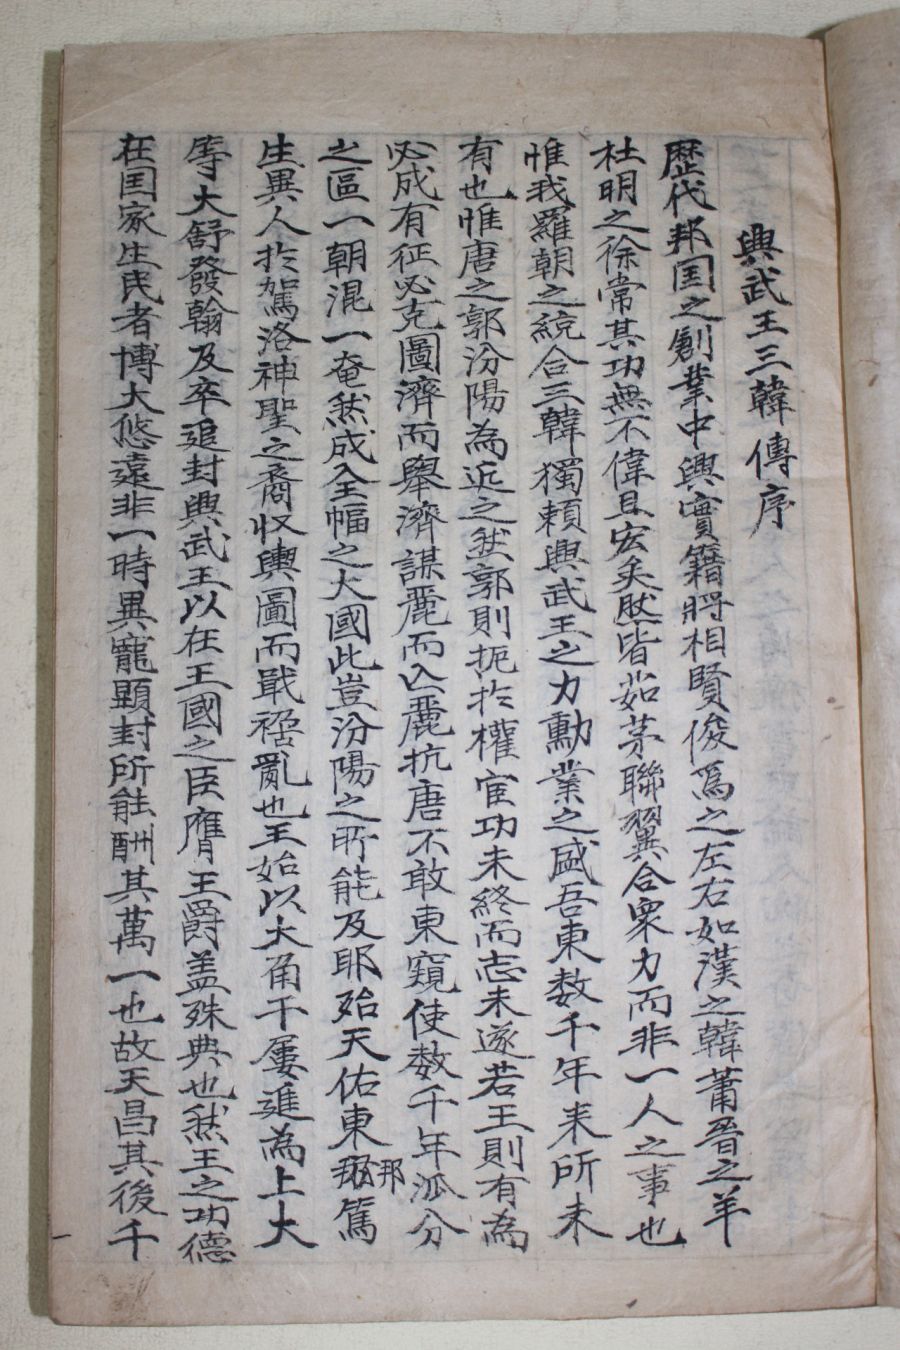 興武王三韓傳序
歷代邦国之創業中興實籍將相賢俊爲之左右如漢之韓蕭晉之羊
杜明之徐常其功無不偉且宏矣然皆茹茅聯翼合衆力而非一人之事也
惟我羅朝之統合三韓獨賴興武王之力勳業之盛吾東数千年来所未
有也惟唐之郭汾陽為近之然郭則扼於權宦功未終而志未遂若王則有為
必成有征必克圖濟而舉濟謀麗而亾麗抗唐不敢東窺使数千年派分
之區一朝混一奄然成全幅之大國此豈汾陽之所能及耶殆天佑東邦篤
生異人於駕洛神聖之裔収輿圖而戢禍亂也王始以大角干屡進為上大
等大舒發翰及卒追封興武王以在王國之臣膺王爵盖殊典也然王之功德
在国家生民者博大悠遠非一時異寵顯封所能酬其萬一也故天昌其後千